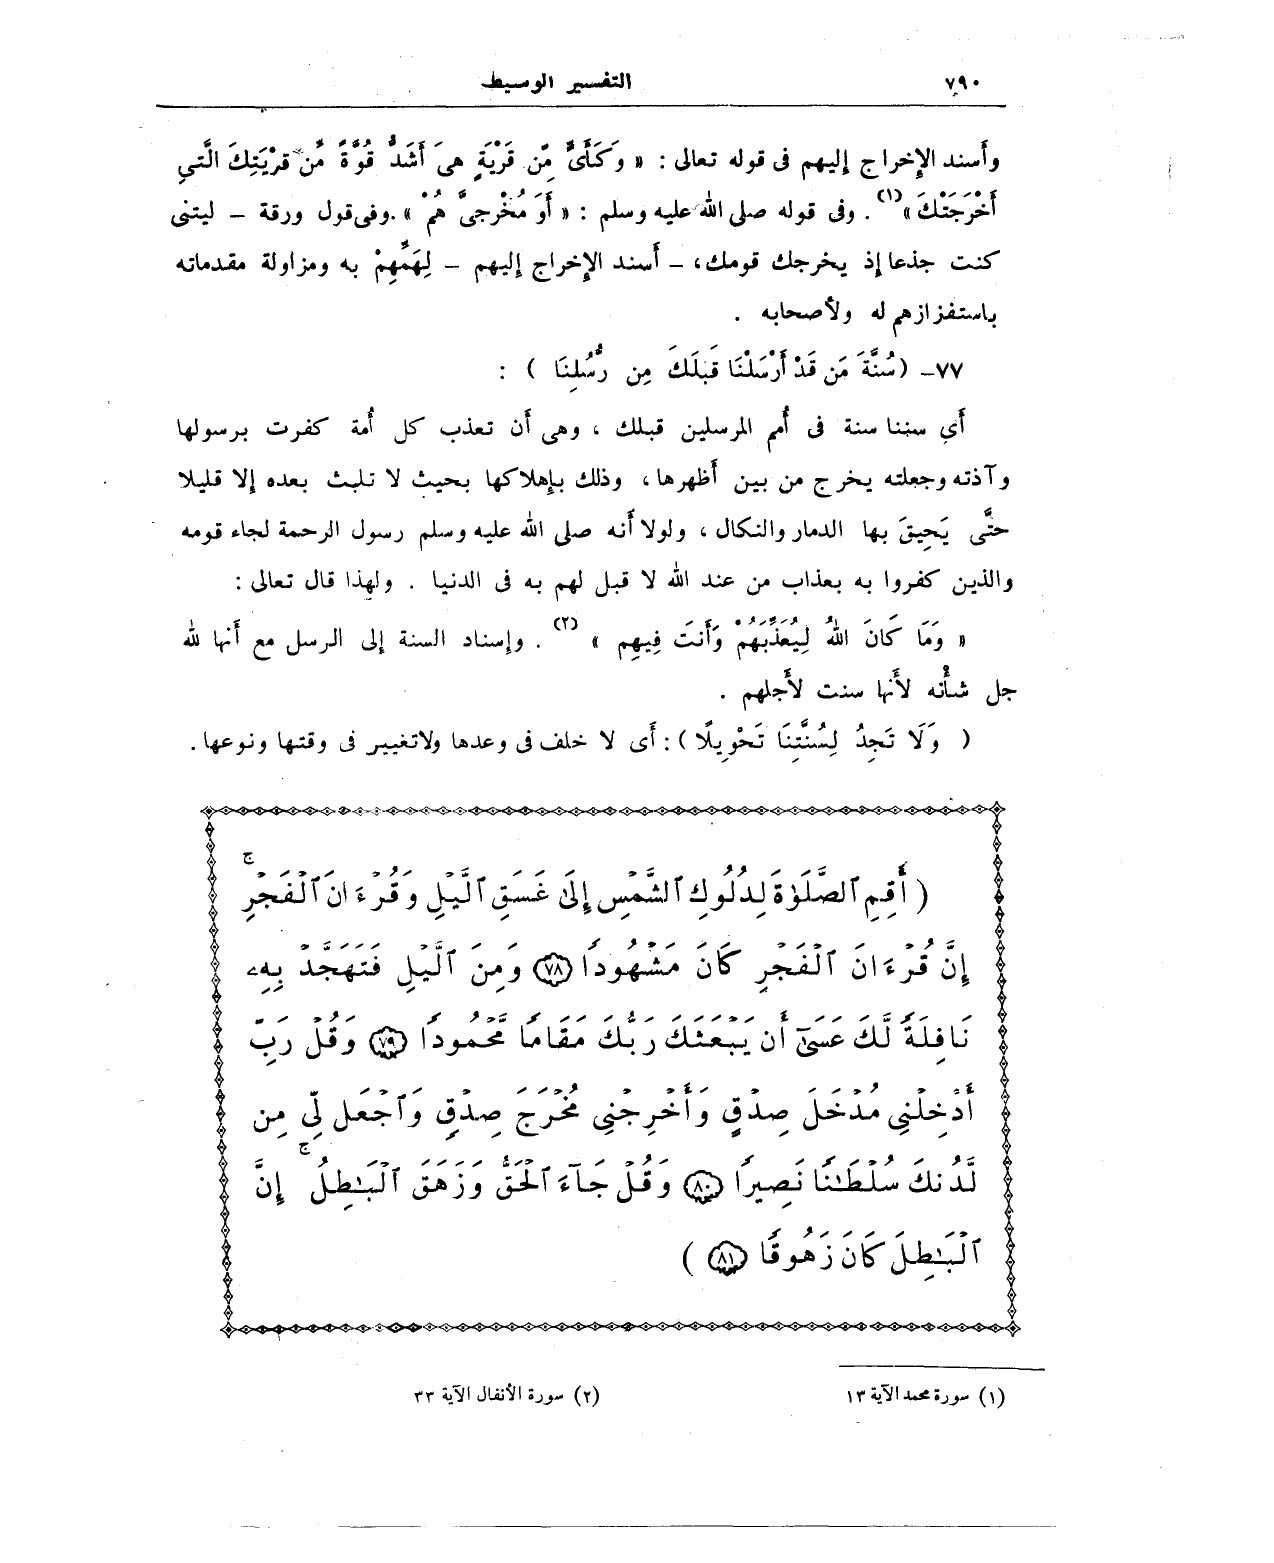 ٧٩٠ التفسير الوسيط
وأسند الإخراج إليهم فى قوله تعالى : « وَكَأَىٍّ مِّن قَرْيَةٍ هِىَ أَشَدُّ قُوَّةً مِّن قَرْيَتِكَ الَّتِي
أَخْرَجَتْكَ »(١) . وفى قوله صلى الله عليه وسلم : « أَوَ مُخْرِجِىَّ هُمْ » .وفى قول ورقة – ليتنى
كنت جذعا إذ يخرجك قومك ، – أسند الإخراج إليهم – لِهَمِّهِمْ به ومزاولة مقدماته
باستفزازهم له ولأصحابه .
٧٧– ( سُنَّةَ مَن قَدْ أَرْسَلْنَا قَبلَكَ مِن رُّسُلِنَا ) :
أي سننا سنة فى أُمم المرسلين قبلك ، وهى أن تعذب كل أُمة كفرت برسولها
وآذته وجعلته يخرج من بين أظهرها ، وذلك بإهلاكها بحيث لا تلبث بعده إلا قليلا
حتَّى يَحِيقَ بها الدمار والنكال ، ولولا أنه صلى الله عليه وسلم رسول الرحمة لجاء قومه
والذين كفروا به بعذاب من عند الله لا قبل لهم به فى الدنيا . ولهذا قال تعالى :
« وَمَا كَانَ اللهُ لِيُعَذِّبَهُمْ وَأَنتَ فِيهِم » (٢) . وإسناد السنة إلى الرسل مع أنها لله
جل شأنه لأنها سنت لأجلهم .
( وَلَا تَجِدُ لِسُنَّتِنَا تَحْوِيلًا ) : أى لا خلف فى وعدها ولاتغيير فى وقتها ونوعها .
( أَقِمِ ٱلصَّلَوٰةَ لِدُلُوكِ ٱلشَّمْسِ إِلَىٰ غَسَقِ ٱلَّيْلِ وَقُرْءَانَ ٱلْفَجْرِ ۖ
إِنَّ قُرْءَانَ ٱلْفَجْرِ كَانَ مَشْهُودًا ٧٨ وَمِنَ ٱلَّيْلِ فَتَهَجَّدْ بِهِۦ
نَافِلَةً لَّكَ عَسَىٰٓ أَن يَبْعَثَكَ رَبُّكَ مَقَامًا مَّحْمُودًا ٧٩ وَقُل رَّبِّ
أَدْخِلْنِى مُدْخَلَ صِدْقٍ وَأَخْرِجْنِى مُخْرَجَ صِدْقٍ وَٱجْعَل لِّى مِن
لَّدُنكَ سُلْطَـٰنًا نَّصِيرًا ٨٠ وَقُلْ جَآءَ ٱلْحَقُّ وَزَهَقَ ٱلْبَـٰطِلُ ۚ إِنَّ
ٱلْبَـٰطِلَ كَانَ زَهُوقًا ٨١ )
(١) سورة محمد الآية ١٣ (٢) سورة الأنفال الآية ٣٣